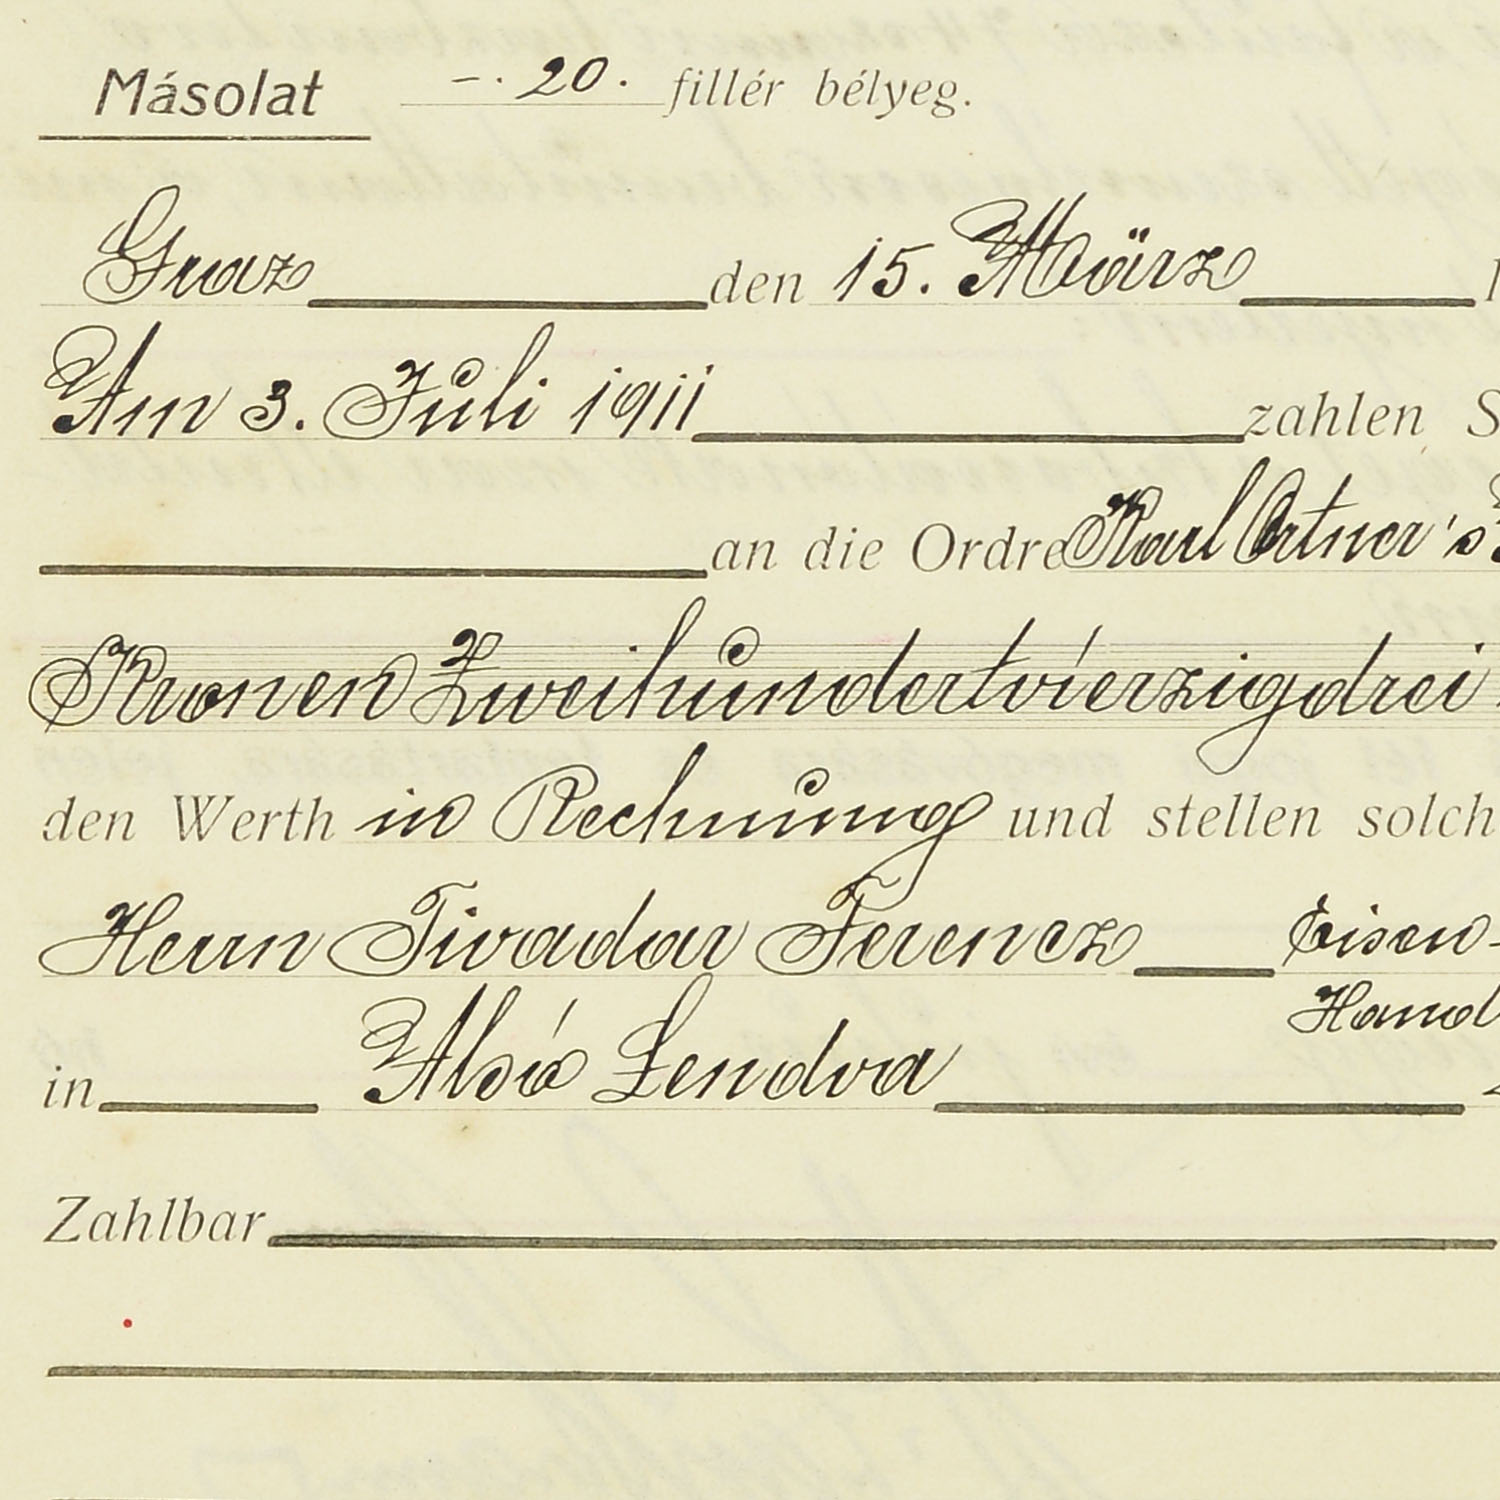 Másolat -. 20. fillér bélyeg.
Graz den 15. März
Am 3. Juli 1911 zahlen S
an die Ordre Karl Ortner's
Kronen Zweihundertvierzigdrei
den Werth in Rechnung und stellen solch
Herrn Tivadar Ferencz Eisen-
Handl
in Alsó Lendva
Zahlbar